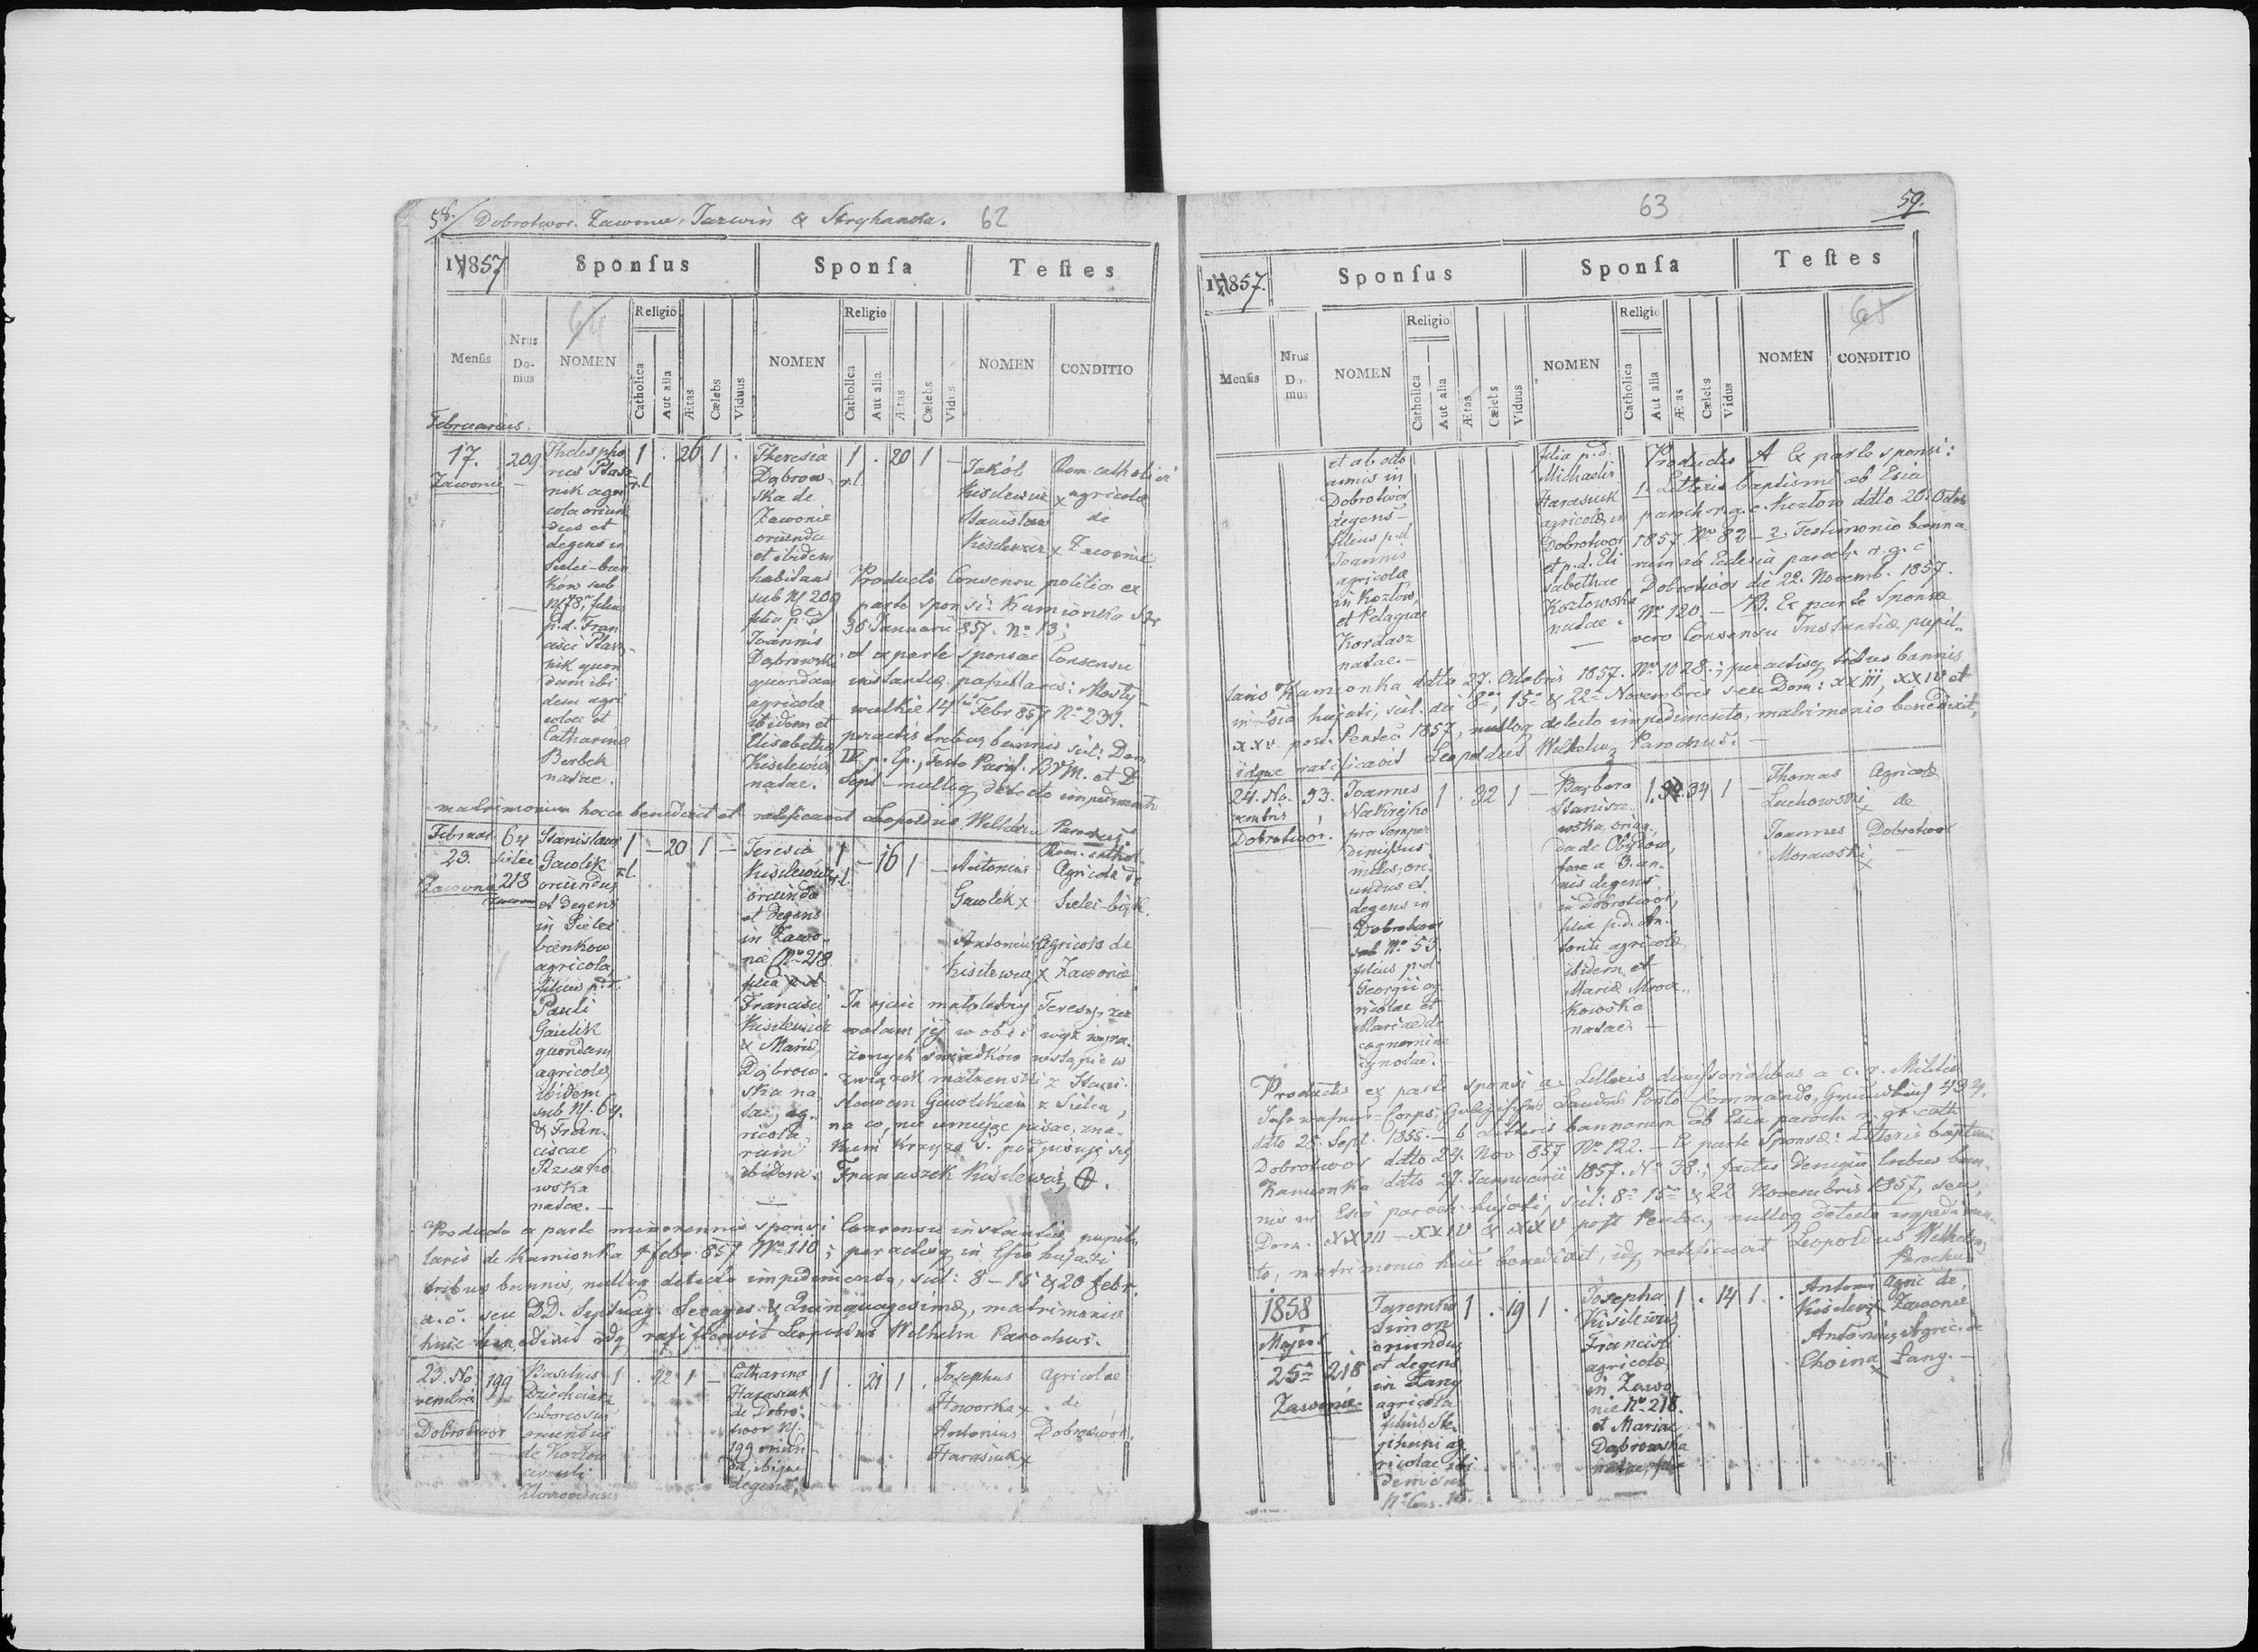 58. Dobrotwor. Zawonie, Jazwin & Stryhanka. 62
1857
Sponsus
Sponsa
Testes
Mensis
Nrus Domus
64
NOMEN
Religio
Catholica
Aut alia
Ætas
Cælebs
Viduus
NOMEN
Religio
Catholica
Aut alia
Ætas
Cælebs
Vidua
NOMEN
CONDITIO
Februarius.
17.
Zawonie
209
Thelespho
rus Ptasz
nik agri
cola oriun
dus et
degens in
Sielec-bień
ków sub
N 78, filius
p.d. Fran
cisci Ptasz-
nik quon
dam ibi
dem agri
colae et
Catharinae
natae.
1 r.l. . 26 1 .
Theresia
Dąbrow-
ska de
Zawonie
oriunda
et ibidem
habitans
sub N 209
filia p.d.
Joannis
Dąbrowski
quondam
agricolae
ibidem et
Elisabetha
Kisilewicz
natae.
1 r.l. . 20 1 –
Jakób
Kisilewicz x
Stanisław
Kisilewicz x
Rom. catholici
agricolae
de
Zawonie
Producto Consensu politico ex
parte sponsi: Kamionka Str
30 Januarii 857. No 13;
et ex parte sponsae Consensu
instantiae pupillaris: Mosty-
wielkie 14 Febr 857 No 231.
peractis tribus bannis scil: Dom
IV. p. Ep., Festo Purif. BVM. et D
Sept – nulloq detecto impedimento
matrimonium hocce benedixit et ratificavit Leopoldus Wilhelm Parochus.
Februar.
23.
Zawonie
64
Sielec
218
Zawonie
Stanislaus
Gawlik
oriundus
et degens
in Sielec
bienkow
agricola,
filius p.d.
Pauli
Gawlik
quondam
agricolae
ibidem
sub N. 64.
& Fran-
ciscae
wska
natae. –
1 r.l. – 20 1 –
Teresia
Kisilewicz
oriunda
et degens
in Zawo-
nie No 218
filia
Francisci
Kisilewicz
& Mariae
Dąbrow-
ska na
tae, ag-
ricola
rum
ibidem.
1 r.l. – 16 1 –
Antonius
Gawlik x
Antonius
Kisilewicz x
Rom. cathol.
Agricola de
Sielec-bięk.
Agricola de
Zawonie
Ja ojciec małoletniej Teresy, zez
walam jej w obec wyż wyra-
żonych świadków wstąpić w
związek małzenski z Stani-
sławem Gawlikiem z Sielca,
na co, nie umiejąc pisać, zna-
kiem krzyża ś. podpisuję się
Franciszek Kisilewicz +.
Producto a parte minorennis sponsi Consensu instantiae pupil-
laris de Kamionka 4 febr. 857 No 110; peractisq in Esia hujati
tribus bannis, nulloq detecto impedimento, scil: 8 – 15 & 20 febr.
a.c. seu DD. Septuag. Sexages & Quinquagesimae, matrimonio
huic benedixit idq ratificavit Leopoldus Wilhelm Parochus.
23. No
vembris
Dobrotwor
199
Basilius
de Kozlow
circuli
Zloczoviensis
1 . 42 1 –
Catharina
Harasiuk
de Dobro-
twor N.
199 oriun
da, ibique
degens,
1 . 21 1 .
Josephus
Haworka x
Antonius
Harasiuk x
Agricolae
de
Dobrotwór.
63
59.
1857.
Sponsus
Sponsa
Testes
Mensis
Nrus Domus
NOMEN
Religio
Catholica
Aut alia
Ætas
Cælebs
Viduus
NOMEN
Religio
Catholica
Aut alia
Ætas
Cælebs
Vidua
NOMEN
65
CONDITIO
et ab octo
annis in
Dobrotwór
degens –
filius p.d.
Joannis
agricolae
in Kozłow,
et Pelagiae
Kordasz
natae. –
filia p.d.
Michaelis
Harasiuk
agricolae in
Dobrotwor
et p.d. Eli
sabethae
Kozłowska
natae. –
Productis A Ex parte sponsi:
1. Litteris baptismi ab Esia
paroch r.g.c. Kozłow ddto 20. Octob
1857. No 82 – 2. Testimonio banno
rum ab Eclesia paroch r.g.c
Dobrotwor die 22. Novemb. 1857.
No 120. – B. Ex parte Sponsae
vero Consensu Instantiae pupil-
laris Kamionka ddto 27. Octobris 1857. No 1028.; peractisq tribus bannis
in Esia hujati, scil. die 8a, 15a & 22a Novembris seu Dom: XXIII, XXIV et
XXV post Pentec. 1857, nulloq detecto impedimento, matrimonio benedixit,
idque ratificavit Leopoldus Wilhelm Parochus. –
24. No.
vembris
Dobrotwor.
53.
Joannes
Nakrejko
pro semper
dimissus
miles, ori-
undus et
degens in
Dobrotwor
sub No 53.
filius p.d.
Georgii ag
ricolae et
Mariae de
cognomine
ignotae.
1 . 32 1 –
Barbara
Stanisze-
wska, oriun-
da de Obydow,
fere a 3. an-
nis degens
in Dobrotwor,
filia p.d. An-
tonii agricolae
ibidem et
Mariae
kowska
natae. –
1 . 34 1 –
Thomas
Luchowski x
Joannes
Morawski x
Agricolae
de
Dobrotwor
–
Productis ex parte sponsi a. Litteris dimissorialibus a c.r. Militar
dato 28. Sept. 1855. – b Litteris bannorum ab Esia paroch r. gr cath
Dobrotwor ddto 24. Nov 857 No 122. – Ex parte Sponsae: Litteris baptismi
Kamionka ddto 27. Januarii 1857. No 38.; factis denique tribus ban-
nis in Esia paroch hujati, scil: 8a 15a & 22 Novembris 1857, seu,
Dom. XXIII – XXIV & XXV post Pentec, nulloq detecto impedimen-
to, matrimonio huic benedixit, idq ratificavit Leopoldus Wilhelm
Parochus
1858
Majus
25a
Zawonie
218
Jaremko
Simon
oriundus
et degens
in Lany
agricola
filius Ste-
phani ag
ricolae ibi
dem sub
1 . 19 1 .
Josepha
Kisilewicz
Francisci
agricolae
in Zawo
nie No 218.
et Mariae
Dąbrowska
natae, filia
1 . 14 1 .
Antonius
Kisilewicz x
Antonius
Choina x
Agric de,
Zawonie
Agric. de
Lany. –